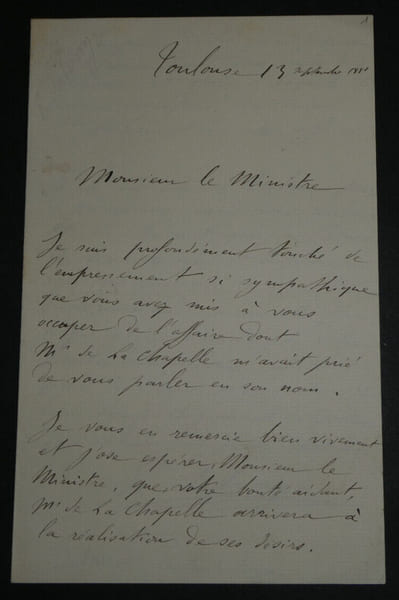 Toulouse 13 septembre
Monsieur le Ministre
Je suis profondément touché de
l'empressement si sympathique
que vous avez mis à vous
occuper de l'affaire dont
Mr de La Chapelle m'avait prié
de vous parler en son nom.
Je vous en remercie bien vivement
et j'ose espérer, Monsieur le
Ministre, que, votre bonté aidant,
Mr de La Chapelle arrivera à
la réalisation de ses désirs.